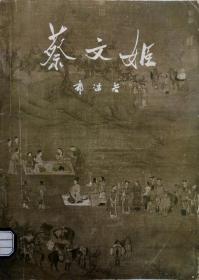 蔡文姬
郭沫若